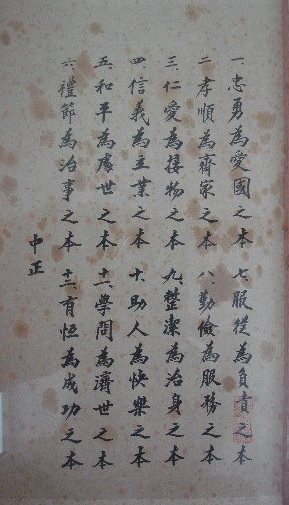 一、忠勇為愛國之本 七、服從為負責之本
二、孝順為齊家之本 八、勤儉為服務之本
三、仁愛為接物之本 九、整潔為治身之本
四、信義為立業之本 十、助人為快樂之本
五、和平為處世之本 十一、學問為濟世之本
六、禮節為治事之本 十二、有恆為成功之本
中正